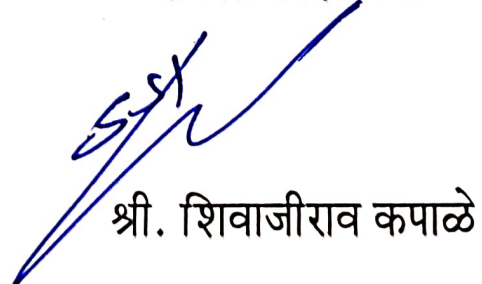 श्री. शिवाजीराव कपाळे